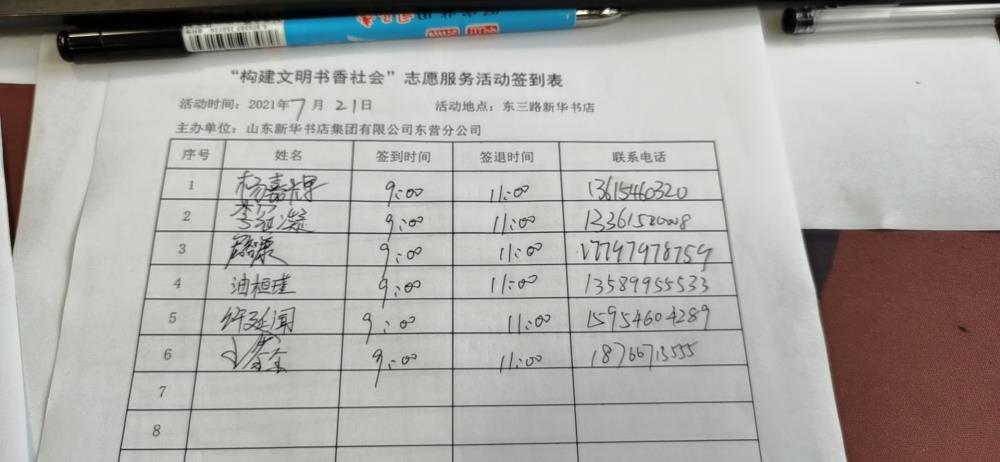 “构建文明书香社会”志愿服务活动签到表
活动时间：2021年7月21日 活动地点：东三路新华书店
主办单位：山东新华书店集团有限公司东营分公司
序号 姓名 签到时间 签退时间 联系电话
1 杨嘉辉 9:00 11:00 13615460320
2 李冠凝 9:00 11:00
3 9:00 11:00 17797978759
4 油桓瑾 9:00 11:00 13589955533
5 许延闻 9:00 11:00 15954604289
6 9:00 11:00 18766713555
7
8